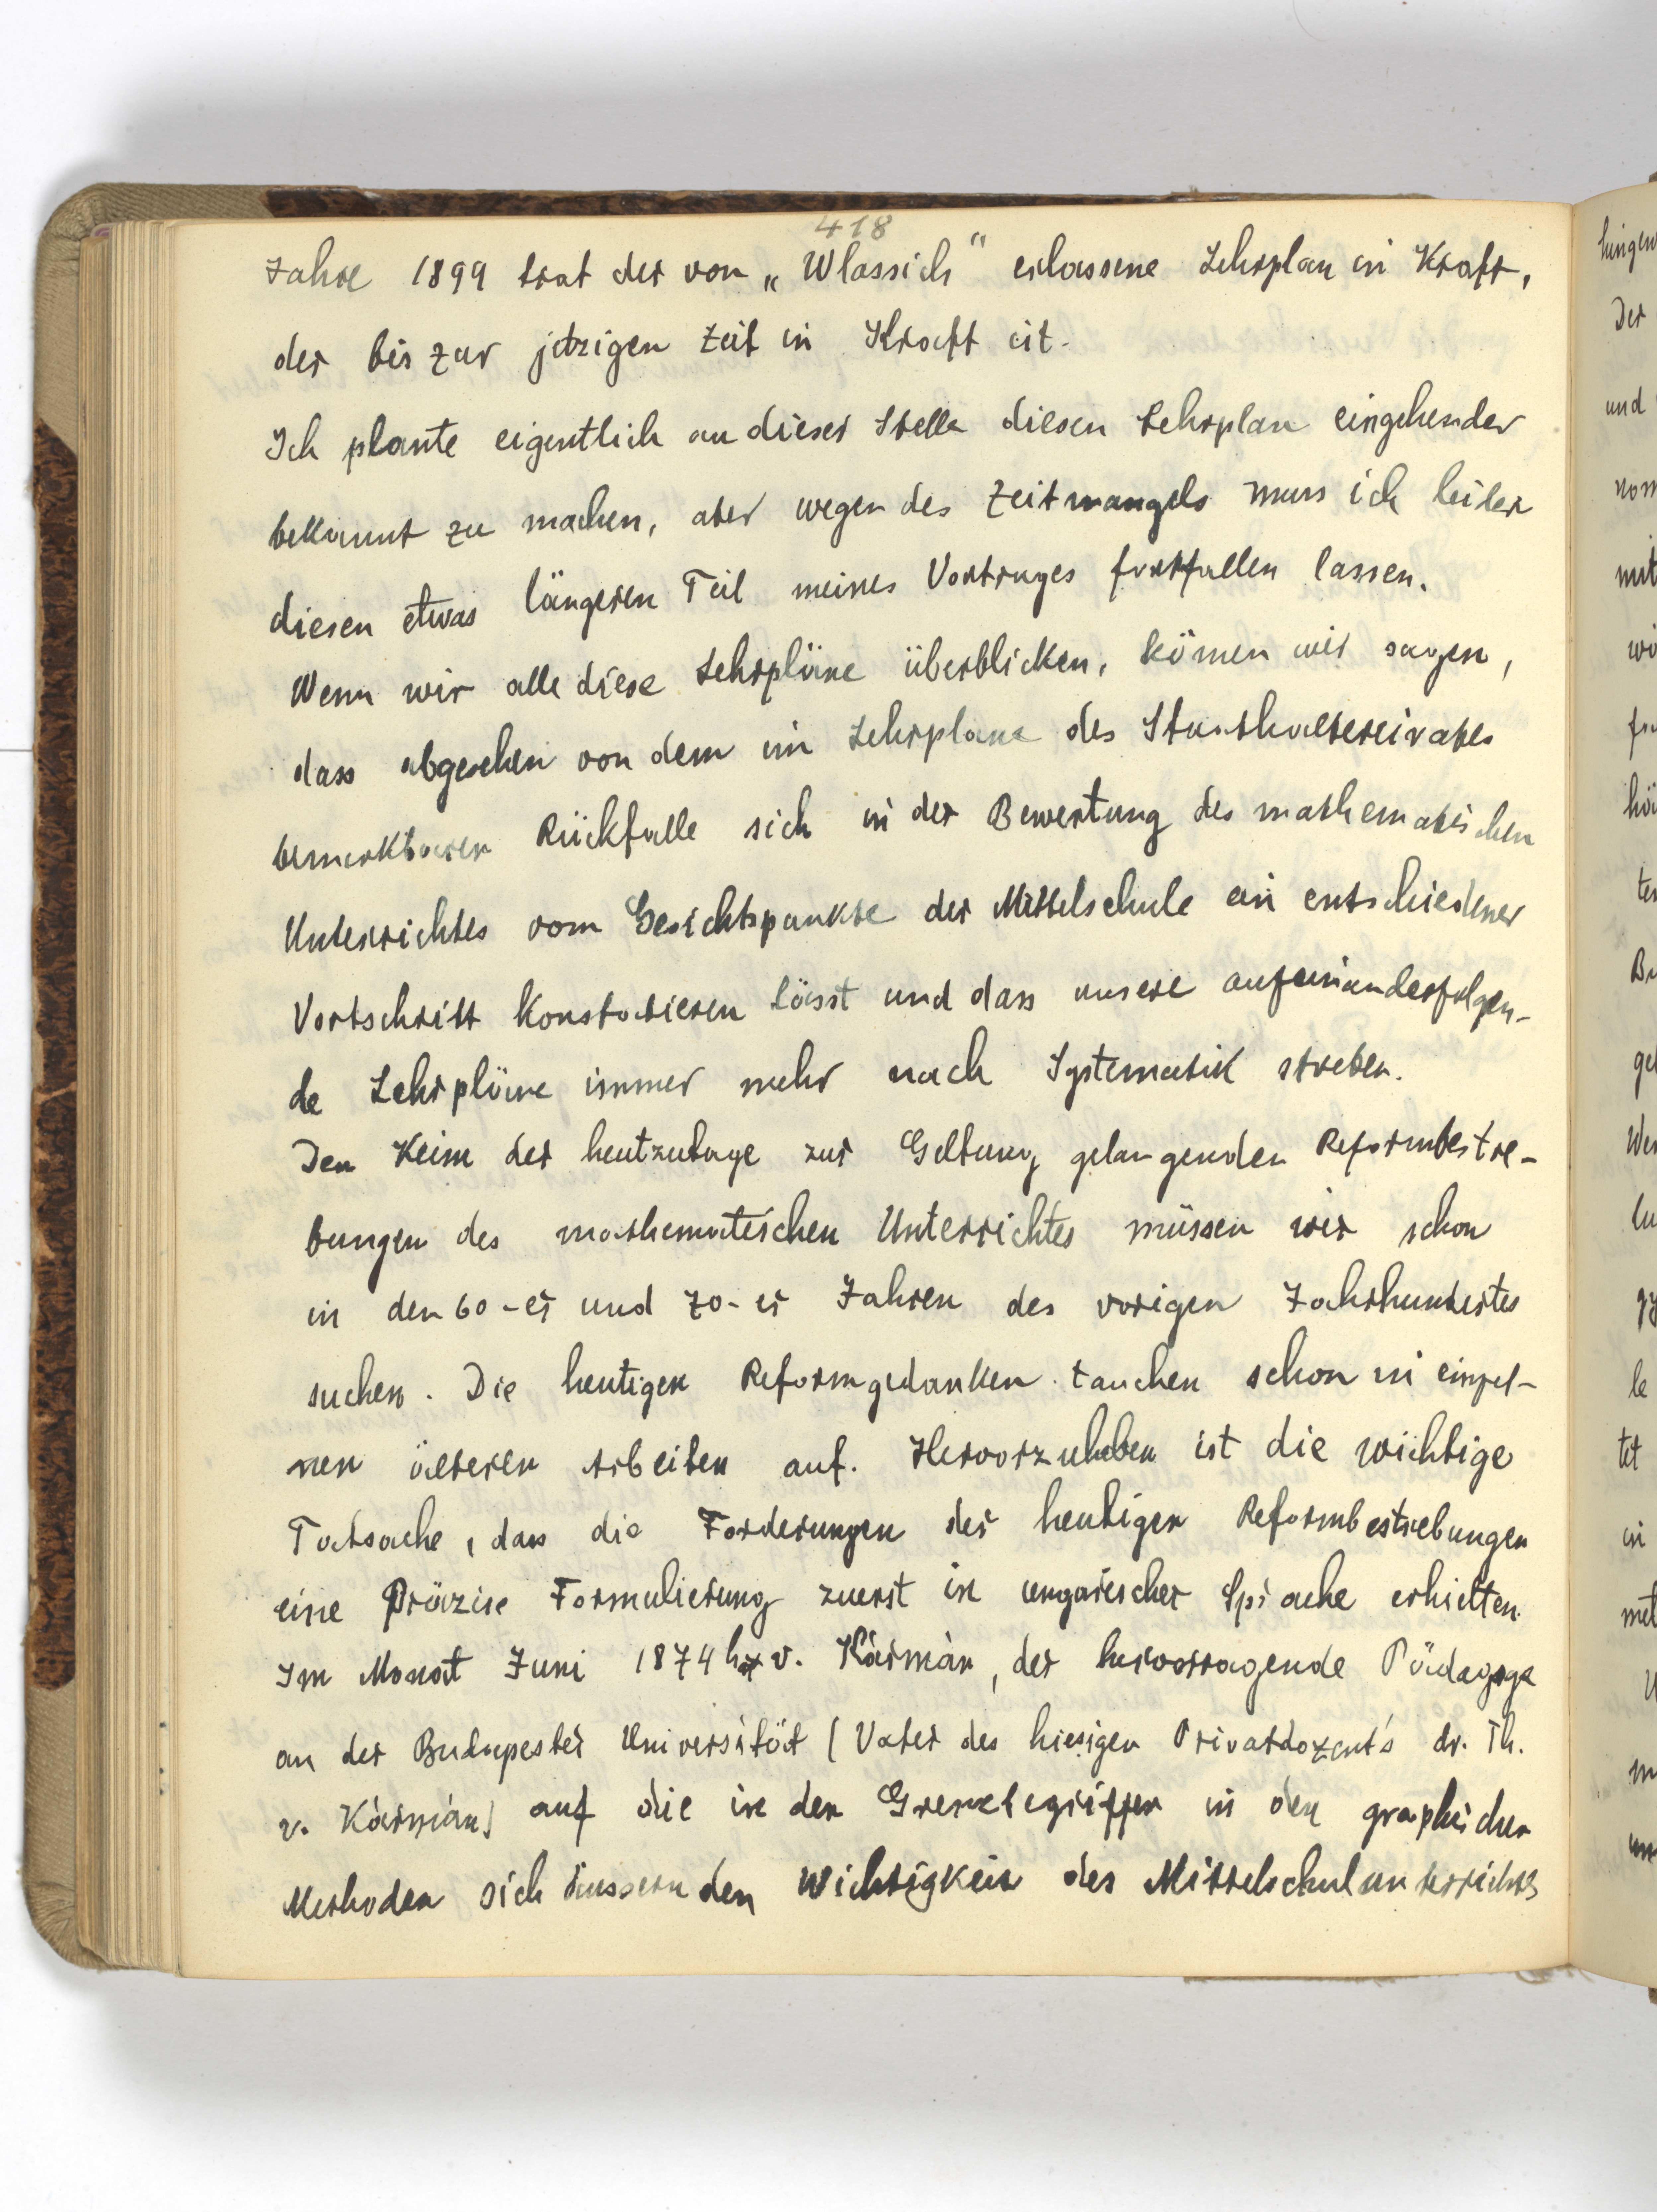 418
Jahre 1899 trat der von „Wlassich“ erlassene Lehrplan in Kraft,
der bis zur jetzigen Zeit in Kraft ist.
Ich plante eigentlich an dieser Stelle diesen Lehrplan eingehender
bekannt zu machen, aber wegen des Zeitmangels muss ich leider
diesen etwas längeren Teil meines Vortrages fortfallen lassen.
Wenn wir alle diese Lehrpläne überblicken, können wir sagen,
dass abgesehen von dem im Lehrplane des Staathaltereirates
bemerkbaren Rückfalle sich in der Bewertung des mathematischen
Unterrichtes vom Gesichtspunkte der Mittelschule ein entschiedener
Vortschritt konstatieren lässt und dass unsere aufeinanderfolgen-
de Lehrpläne immer mehr nach Systematik streben.
Den Keim der heutzutage zur Geltung gelangenden Reformbestre-
bungen des mathematischen Unterrichtes müssen wir schon
in den 60-er und 70-er Jahren des vorigen Jahrhundertes
suchen. Die heutigen Reformgedanken tauchen schon in einzel-
nen älteren Arbeiten auf. Hervorzuheben ist die wichtige
Tatsache, dass die Forderungen der heutigen Reformbestrebungen
eine Präzise Formulierung zuerst in ungarischer Sprache erhielten.
Im Monat Juni 1874 hat v. Kármán, der hervorragende Pädagoge
an der Budapester Universität (Vater des hiesigen Privatdozent's dr. Th.
v. Kármán) auf die in den Grenzbegriffen in den graphischen
Methoden sich äussernden Wichtigkeit des Mittelschulunterrichts
hingew
Der
und
nom
mit
wi
ten
Be
ge
We
le
tet
in
met